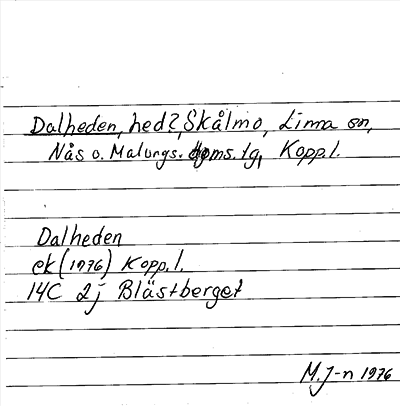 Dalheden, hed?, Skålmo, Lima sn,
Nås o. Malungs. doms. lg, Kopp.l.
Dalheden
ek (1976) Kopp.l.
14C 2j Blästberget
M.J-n 1976